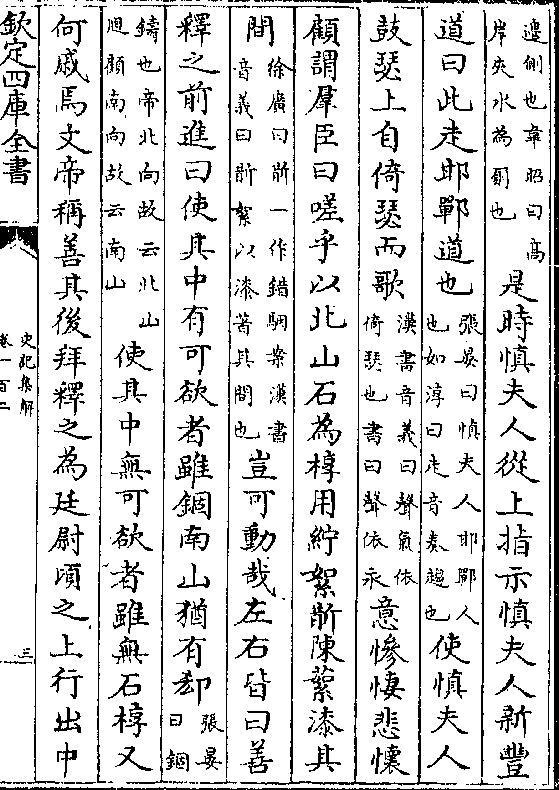 邊側也韋昭曰高岸夾水為厠也是時慎夫人從上指示慎夫人新豐
道曰此走邯鄲道也張晏曰慎夫人邯鄲人也如淳曰走音奏趨也使慎夫人
鼓瑟上自倚瑟而歌漢書音義曰聲氣依倚瑟也書曰聲依永意慘悽悲懷
顧謂羣臣曰嗟乎以北山石為椁用紵絮斮陳蕠漆其
間徐廣曰斮一作錯駰案漢書音義曰斮絮以漆著其間也豈可動哉左右皆曰善
釋之前進曰使其中有可欲者雖錮南山猶有郄張晏曰錮
鑄也帝北向故云北山迴顧南向故云南山使其中無可欲者雖無石椁又
何戚焉文帝稱善其後拜釋之為廷尉頃之上行出中
欽定四庫全書
史記集解
卷一百二
三